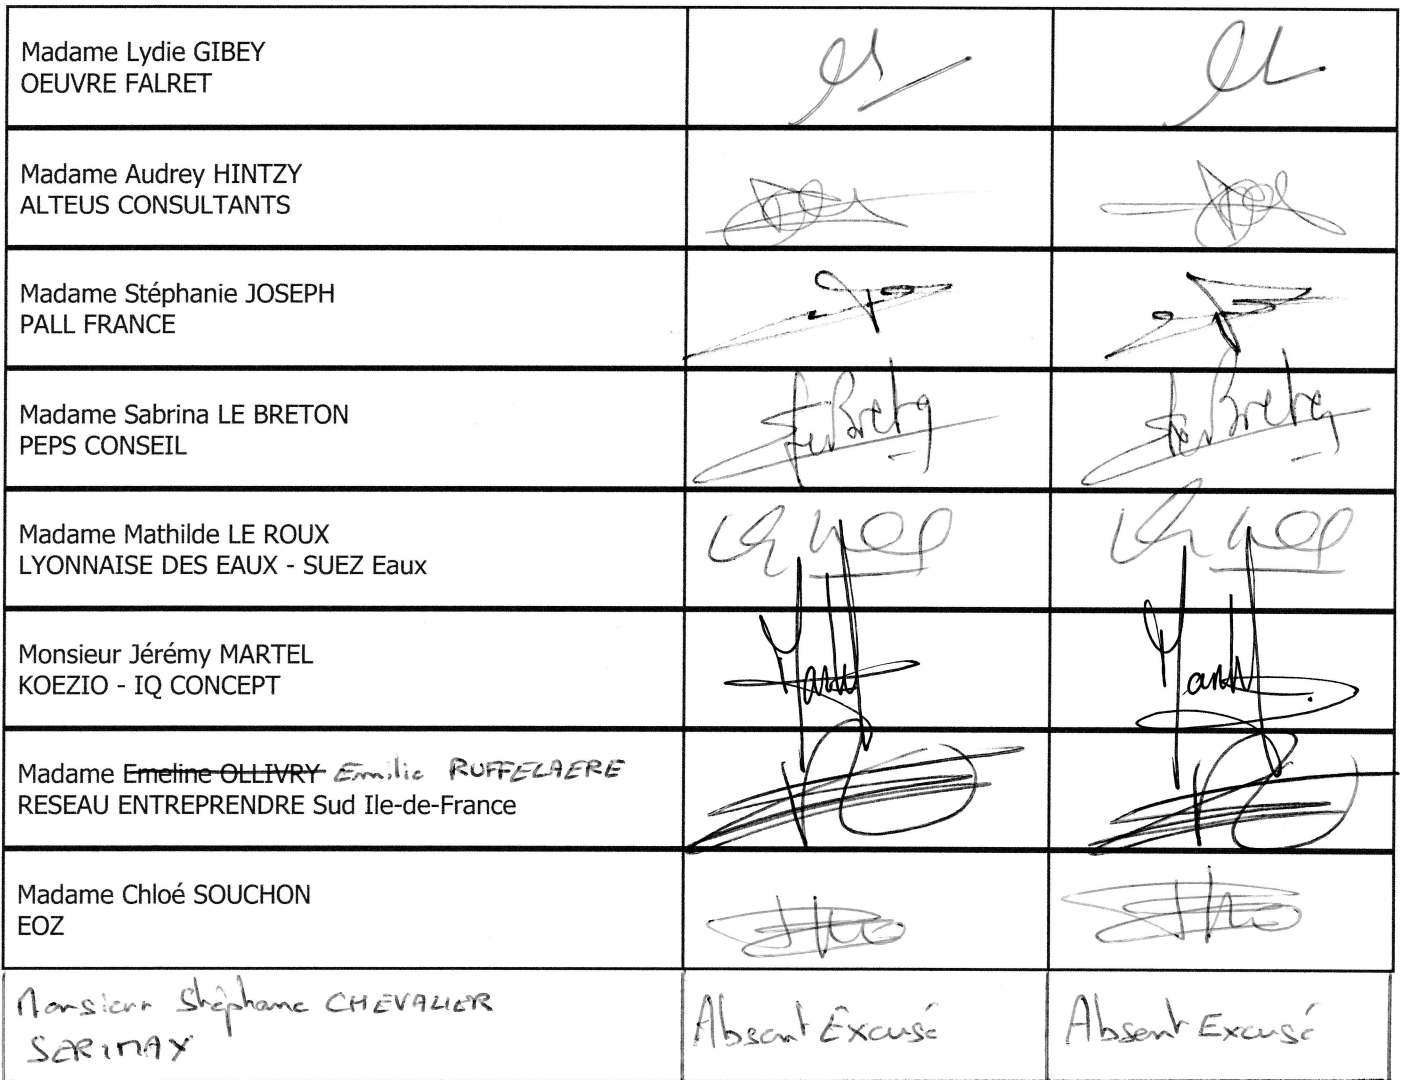 Madame Lydie GIBEY
OEUVRE FALRET
Madame Audrey HINTZY
ALTEUS CONSULTANTS
Madame Stéphanie JOSEPH
PALL FRANCE
Madame Sabrina LE BRETON
PEPS CONSEIL
Madame Mathilde LE ROUX
LYONNAISE DES EAUX - SUEZ Eaux
Monsieur Jérémy MARTEL
KOEZIO - IQ CONCEPT
Madame Emeline OLLIVRY Emilie RUFFELAERE
RESEAU ENTREPRENDRE Sud Ile-de-France
Madame Chloé SOUCHON
EOZ
Monsieur Stéphane CHEVALIER
SERIMAX
Absent Excusé
Absent Excusé